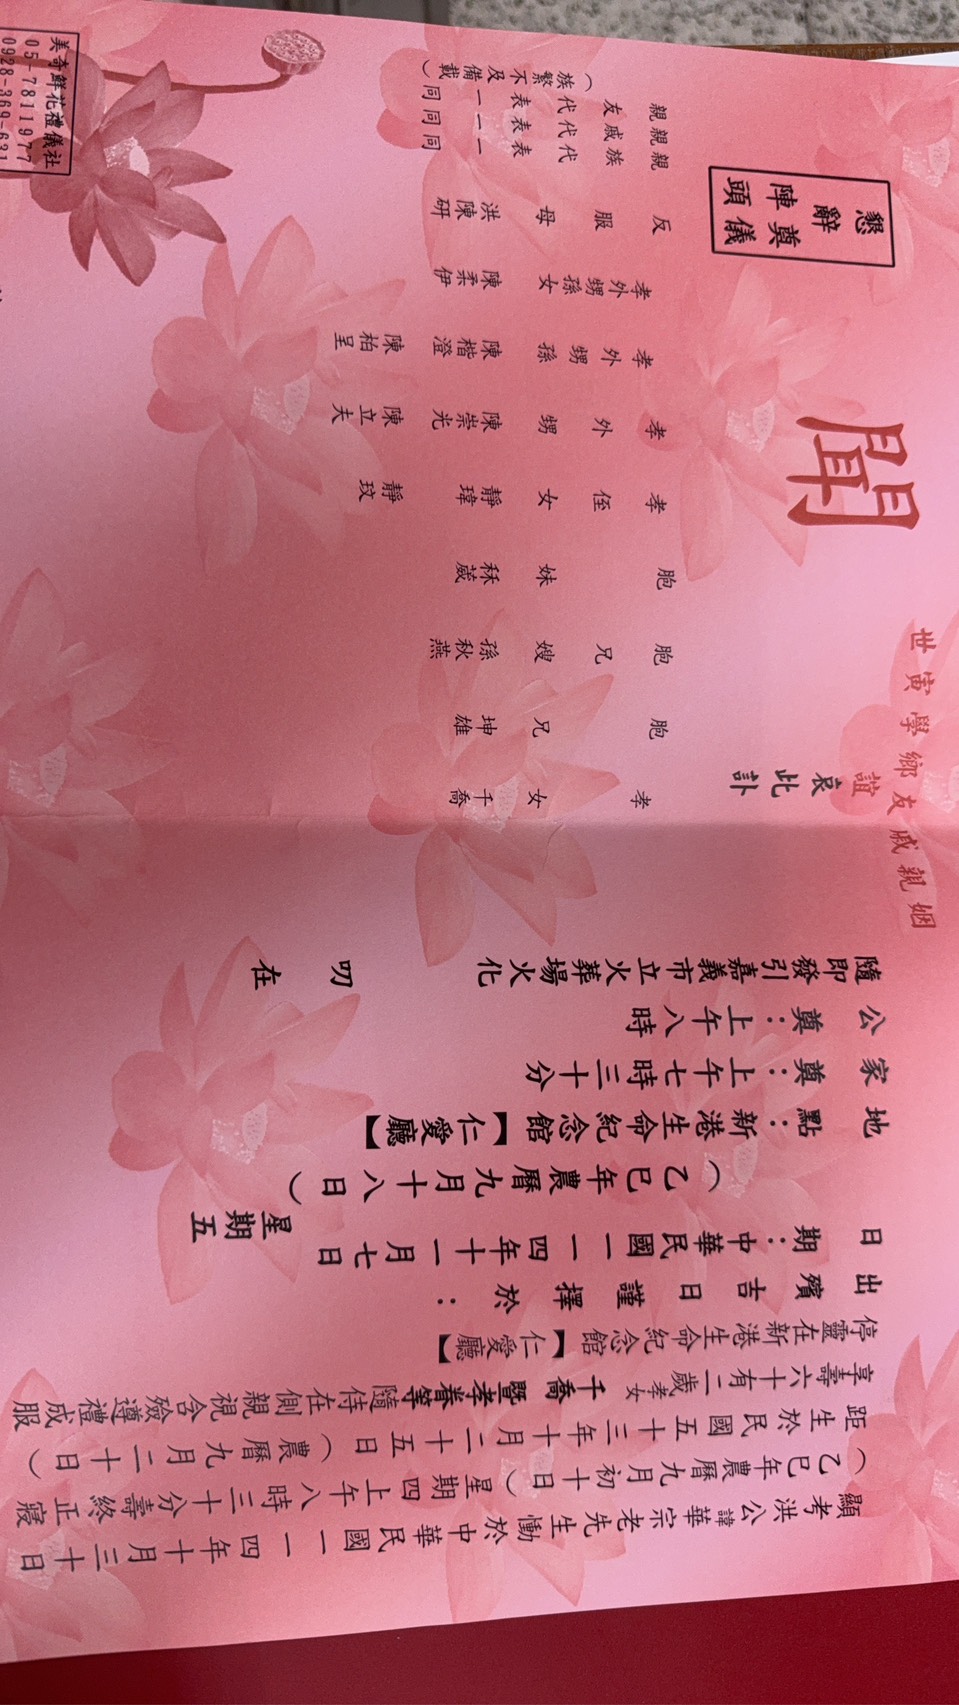 顯考洪公諱華宗老先生慟於中華民國一一四年十月三十日
(乙巳年農曆九月初十日)星期四上午八時三十分壽終正寢
距生於民國五十三年十月二十五日(農曆九月二十日)
享壽六十有二歲 孝女千喬暨孝眷等隨侍在側親視含殮遵禮成服
停靈在新港生命紀念館【仁愛廳】
出殯吉日謹擇於:
日期:中華民國一一四年十一月七日星期五
(乙巳年農曆九月十八日)
地點:新港生命紀念館【仁愛廳】
家奠:上午七時三十分
公奠:上午八時
隨即發引嘉義市立火葬場火化 叨在
姻親戚友鄉學寅世誼 哀此訃
聞
孝女 千喬
胞兄 坤雄
胞兄嫂 孫秋燕
胞妹 秝葳
孝侄女 靜瑋 靜玟
孝外甥 陳崇光 陳立夫
孝外甥孫 陳楷澄 陳柏呈
孝外甥孫女 陳柔伊
反服母 洪陳研
親族代表一同
親戚代表一同
親友代表一同
(族繁不及備載)
懇辭奠儀陣頭
美奇鮮花禮儀社
05-7811977
0928-369-631